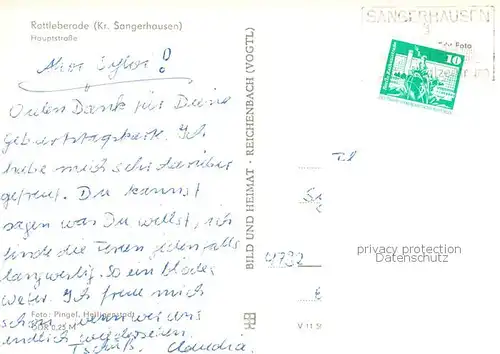 Rottleberode (Kr. Sangerhausen)
Hauptstraße
SANGERHAUSEN
Foto
10
!
Vielen Dank für Deine
Geburtstagskarte. Ich
habe mich sehr darüber
gefreut. Du kannst
sagen was Du willst, ich
finde die Ferien jedenfalls
langweilig. So ein blödes
Ich freue mich
schon wenn wir uns
endlich wiedersehen.
Tschüß, Claudia.
Foto: Pingel, Heiligenstadt
DDR 0,25 M
BILD UND HEIMAT · REICHENBACH (VOGTL)
4732
V 11 5
privacy protection
Datenschutz